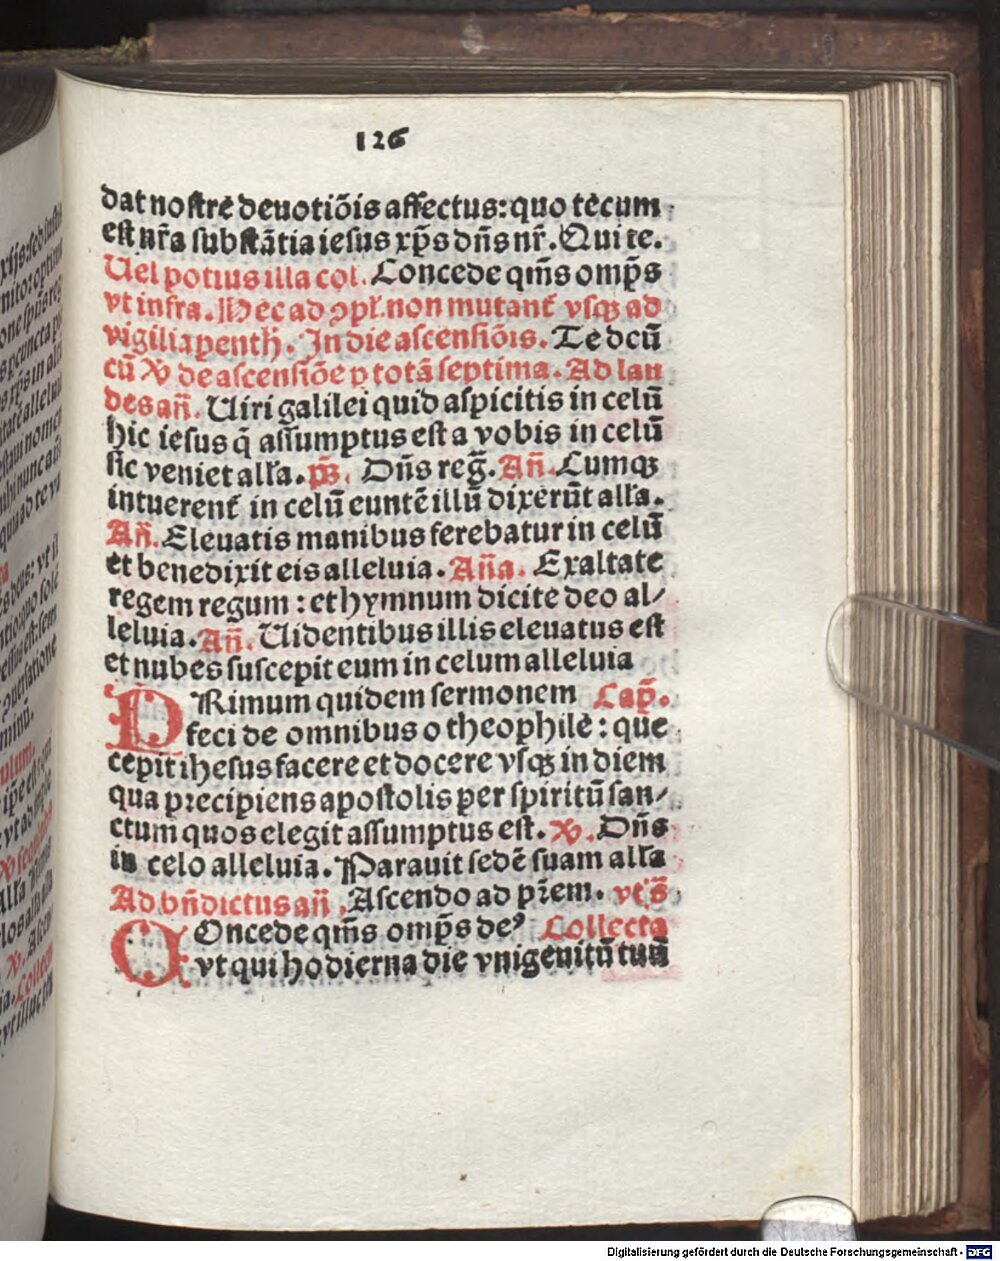 126
dat nostre deuotiõis affectus: quo tecum
est nr̃a substãtia iesus xp̃s dñs nr̃. Qui te.
Uel potius illa col. Concede qm̃s omp̃s
vt infra. Hec ad ꝯpl̃. non mutant᷑ vsqꝫ ad
vigiliã penth̃. In die ascensiõis. Te dcũ
cũ ℣ de ascensiõe p totã septima. Ad lau
des añ. Uiri galilei quid aspicitis in celũ
hic iesus q̃ assumptus est a vobis in celũ
sic veniet all̃a. p̃s. Dñs reg̃. Añ. Cumqꝫ
intuerent᷑ in celũ euntẽ illũ dixerũt all̃a.
Añ. Eleuatis manibus ferebatur in celũ
et benedixit eis alleluia. Aña. Exaltate
regem regum : et hymnum dicite deo al/
leluia. Añ. Uidentibus illis eleuatus est
et nubes suscepit eum in celum alleluia
PRimum quidem sermonem Cap̃.
feci de omnibus o theophile : que
cepit ihesus facere et docere vsqꝫ in diem
qua precipiens apostolis per spiritũ san/
ctum quos elegit assumptus est. ℣. Dñs
in celo alleluia. Parauit sedẽ suam all̃a
Ad bñdictus añ. Ascendo ad pr̃em. vt s̃.
COncede qm̃s omp̃s deꝰ Collecta
vt qui hodierna die vnigenitũ tuũ
Digitalisierung gefördert durch die Deutsche Forschungsgemeinschaft - DFG